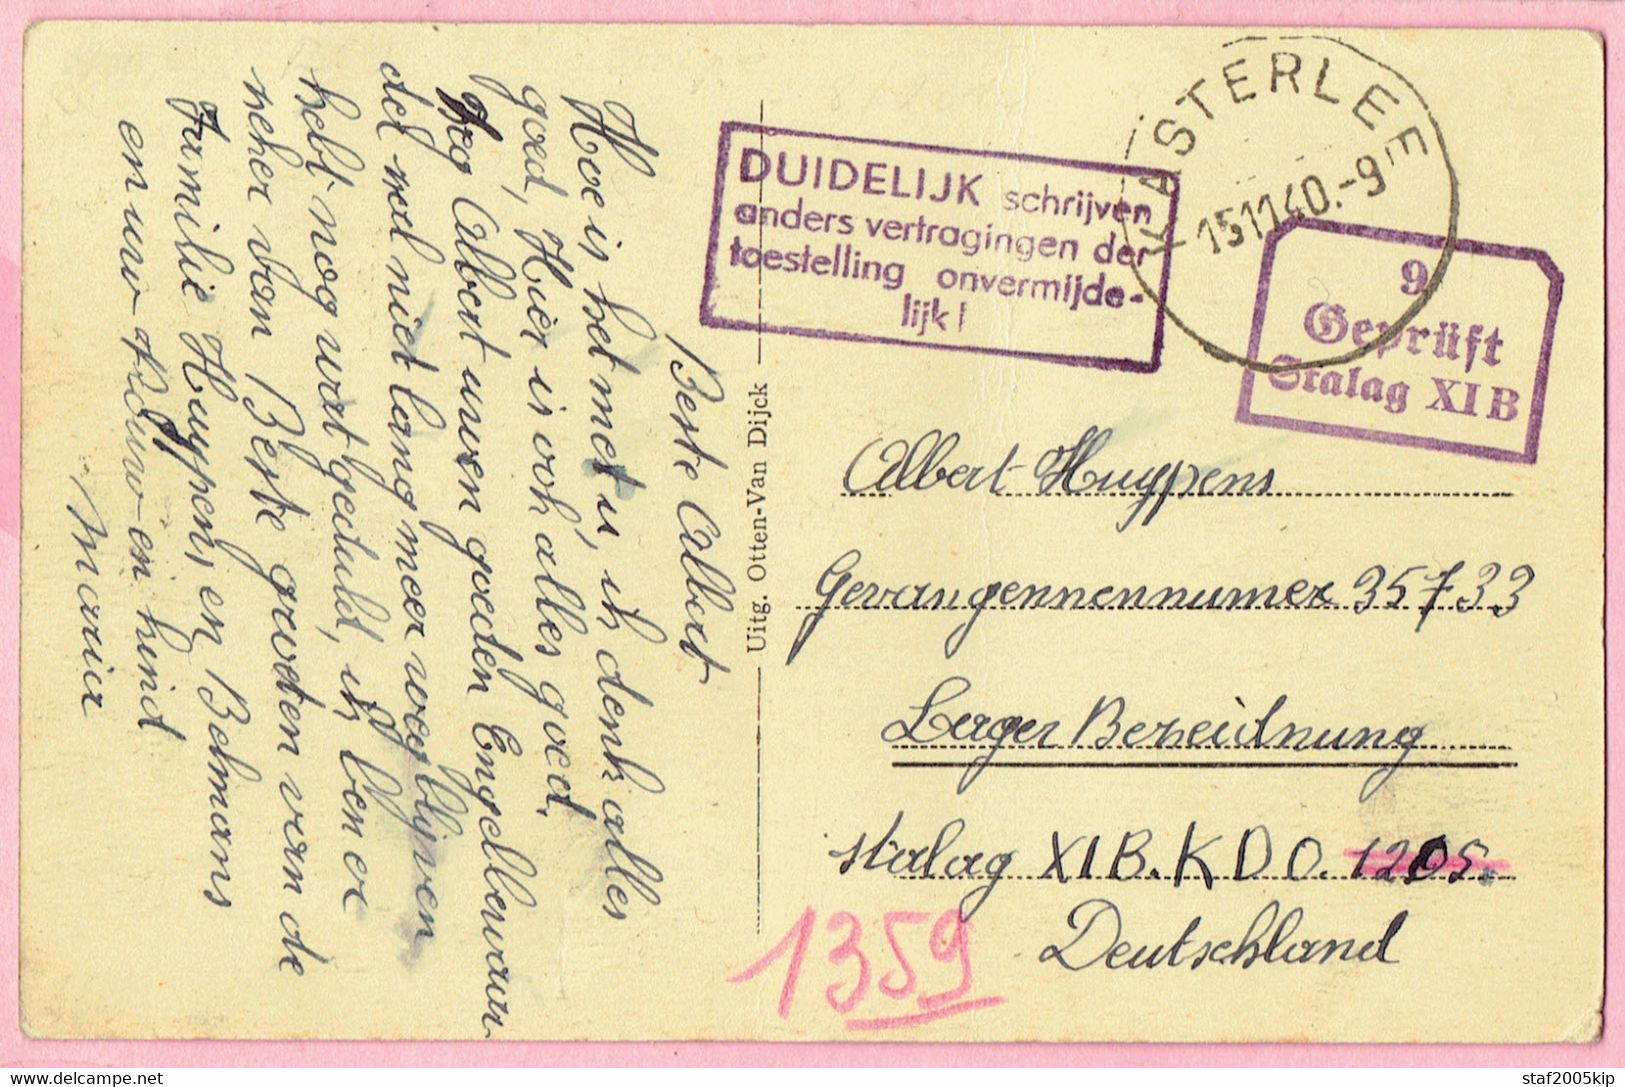 Beste Albert
Hoe is het met u, ik denk alles
goed, Hier is ook alles goed.
Zeg Albert uwen goeden Engelbewaar
del zal niet lang meer wegblijven
hebt nog wat geduld, ik ben
zeker van Beste groeten van de
Familie Huypens en Belmans
en uw vrouw en kind
Maria
Uitg. Otten-Van Dijck
DUIDELIJK schrijven
anders vertragingen der
toestelling onvermijde-
lijk!
KASTERLEE
15 11 40.-9
9
Geprüft
Stalag XI B
Albert Huypens
Gevangennennumer 35733
Lager Bezeidnung
Stalag XI B. K D O. 1205.
Deutschland
1359
staf2005kip